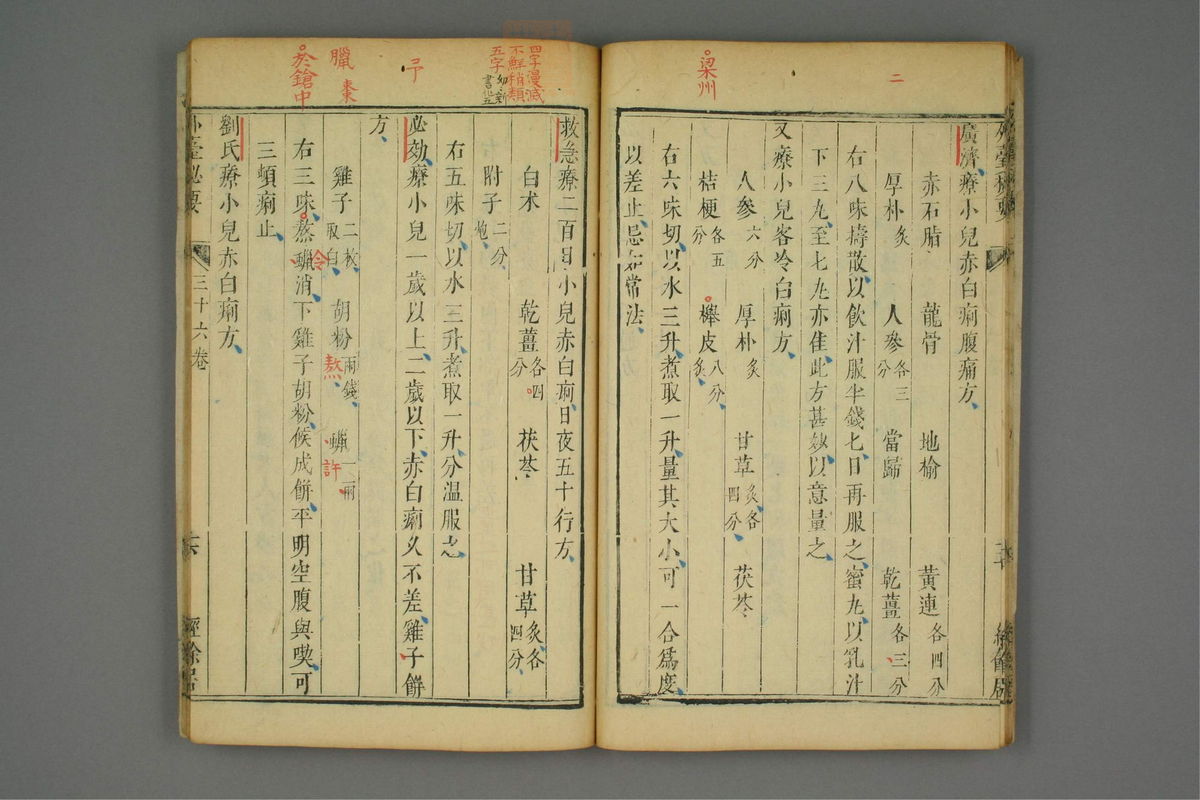 二
梁州
廣濟療小兒赤白痢腹痛方
赤石脂 龍骨 地榆 黃連各四分
厚朴炙 人參各三分 當歸 乾薑各三分
右八味擣散以飲汁服半錢七日再服之蜜丸以乳汁
下三丸至七丸亦佳此方甚妙以意量之
又療小兒客冷白痢方
人參六分 厚朴炙 甘草炙各四分 茯苓
桔梗各五分 櫸皮八分炙
右六味切以水三升煮取一升量其大小可一合爲度
以差止忌如常法
四字漫滅
不鮮稍類
五字
救急療二百日小兒赤白痢日夜五十行方
白朮 乾薑各四分 茯苓 甘草炙各四分
附子二分炮
右五味切以水三升煮取一升分温服之
必效療小兒一歲以上二歲以下赤白痢久不差雞子餅
方
臘
棗
雞子二枚取白 胡粉兩錢熬 蠟一兩許
於鎗中
右三味熬蠟消下雞子胡粉候成餅平明空腹與喫可
令
三頓痢止
劉氏療小兒赤白痢方
外臺祕要 三十六卷 經餘居